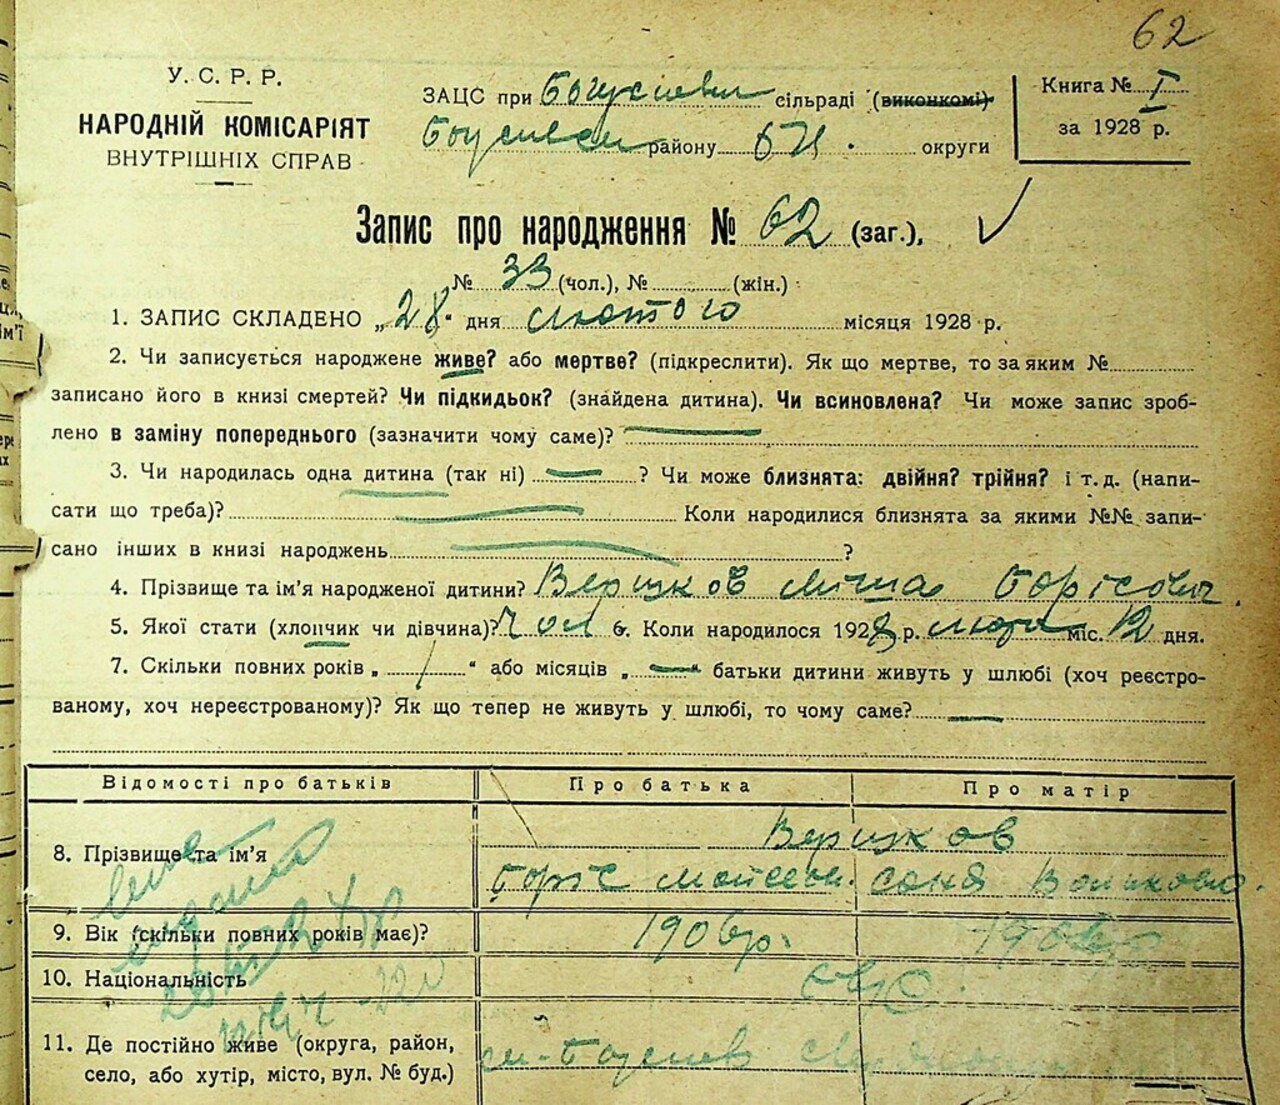 62
У. С. Р. Р.
НАРОДНІЙ КОМІСАРІЯТ
ВНУТРІШНІХ СПРАВ
ЗАЦС при сільраді (виконкомі)
району БЦ. округи
Книга № I
за 1928 р.
Запис про народження № 62 (заг.),
№ 33 (чол.), № (жін.)
1. ЗАПИС СКЛАДЕНО „28" дня лютого місяця 1928 р.
2. Чи записується народжене живе? або мертве? (підкреслити). Як що мертве, то за яким №
записано його в книзі смертей? Чи підкидьок? (знайдена дитина). Чи всиновлена? Чи може запис зроб-
лено в заміну попереднього (зазначити чому саме)?
3. Чи народилась одна дитина (так ні) — ? Чи може близнята: двійня? трійня? і т. д. (напи-
сати що треба)? Коли народилися близнята за якими №№ запи-
сано інших в книзі народжень ?
4. Прізвище та ім'я народженої дитини? Міша Борісович.
5. Якої стати (хлопчик чи дівчина)? Чол 6. Коли народилося 1928 р. люто міс. 12 дня.
7. Скільки повних років „ " або місяців „—" батьки дитини живуть у шлюбі (хоч реєстро-
ваному, хоч нереєстрованому)? Як що тепер не живуть у шлюбі, то чому саме? —
Відомості про батьків Про батька Про матір
8. Прізвище та ім'я
Боріс Мойсеєв. Соня
9. Вік (скільки повних років має)? 1906 р. 1906 р
10. Національність Євр.
11. Де постійно живе (округа, район,
село, або хутір, місто, вул. № буд.)